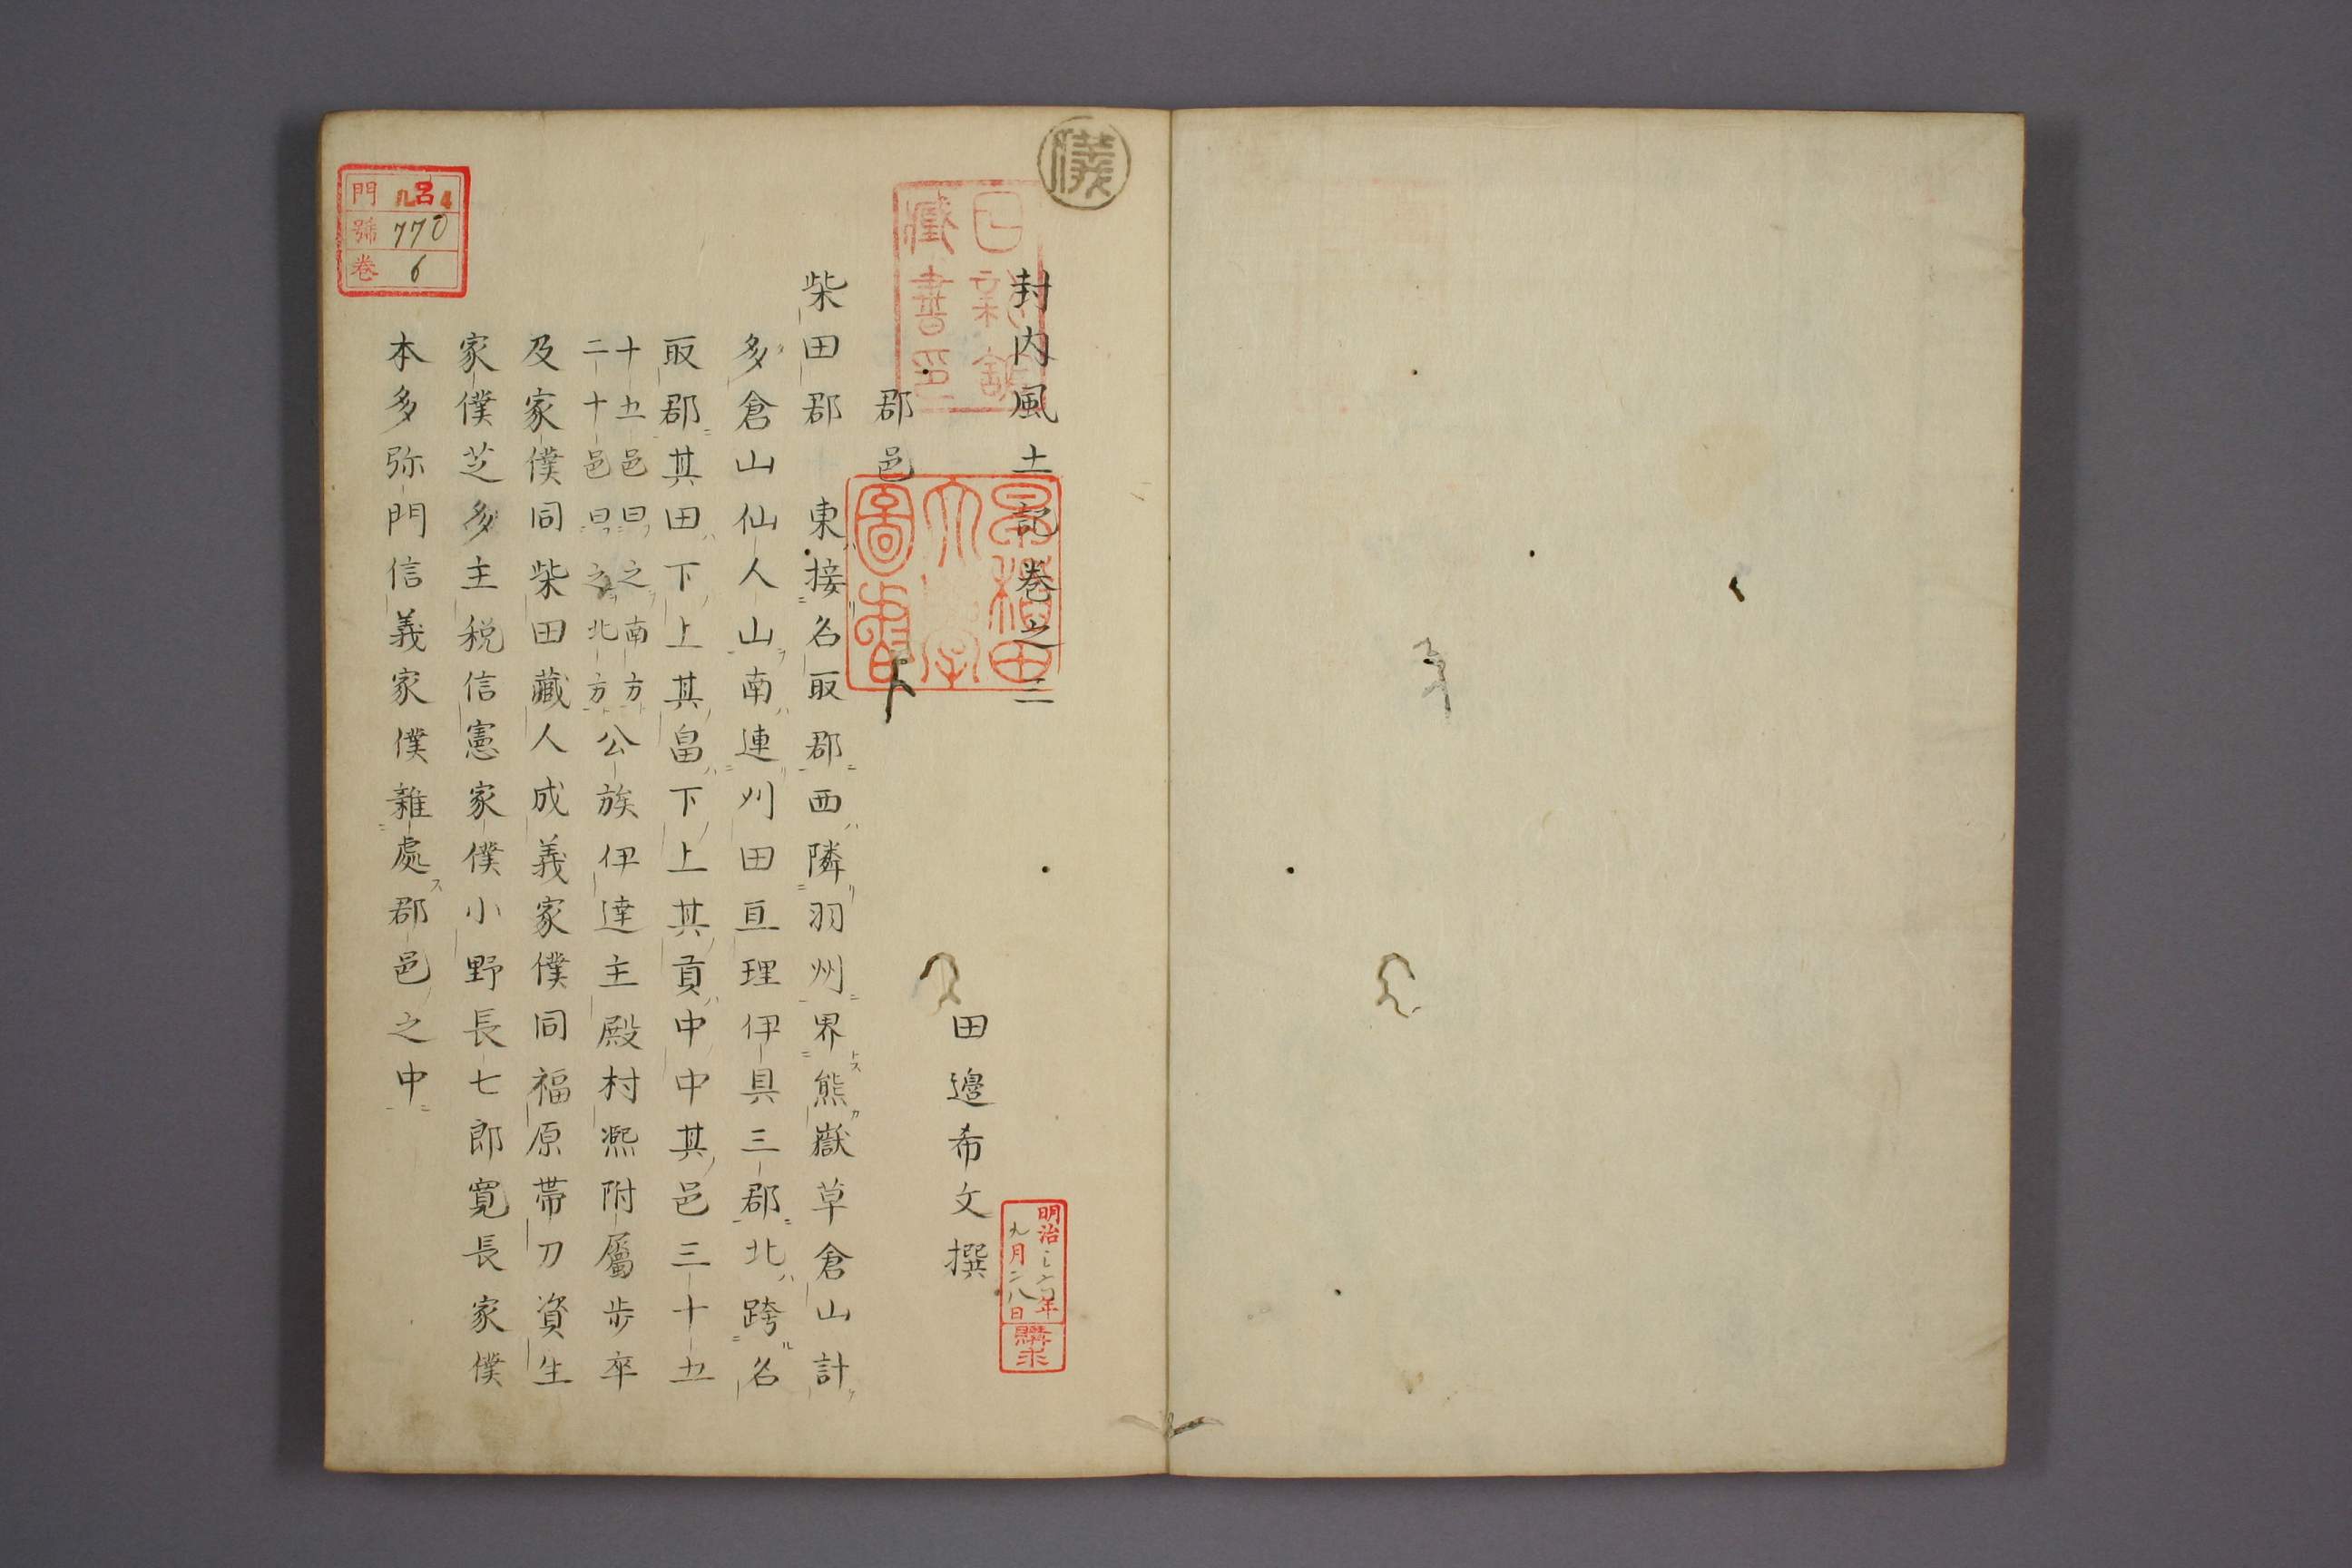 封内風土記巻之三
田邉希文撰
郡邑
柴田郡　東接名取郡西隣羽州界熊嶽草倉山計
多倉山仙人山南連刈田亘理伊具三郡北跨名
取郡其田下上其畠下上其貢中中其邑三十五
十五邑曰之南方
二十邑曰之北方
公族伊達主殿村凞附屬歩卒
及家僕同柴田藏人成義家僕同福原帯刀資生
家僕芝多主税信憲家僕小野長七郎寛長家僕
本多弥門信義家僕雜處郡邑之中
早稲田
大學
圖書
藏書印
明治
年
九月二八日
購求
門 呂4
號 770
卷 6